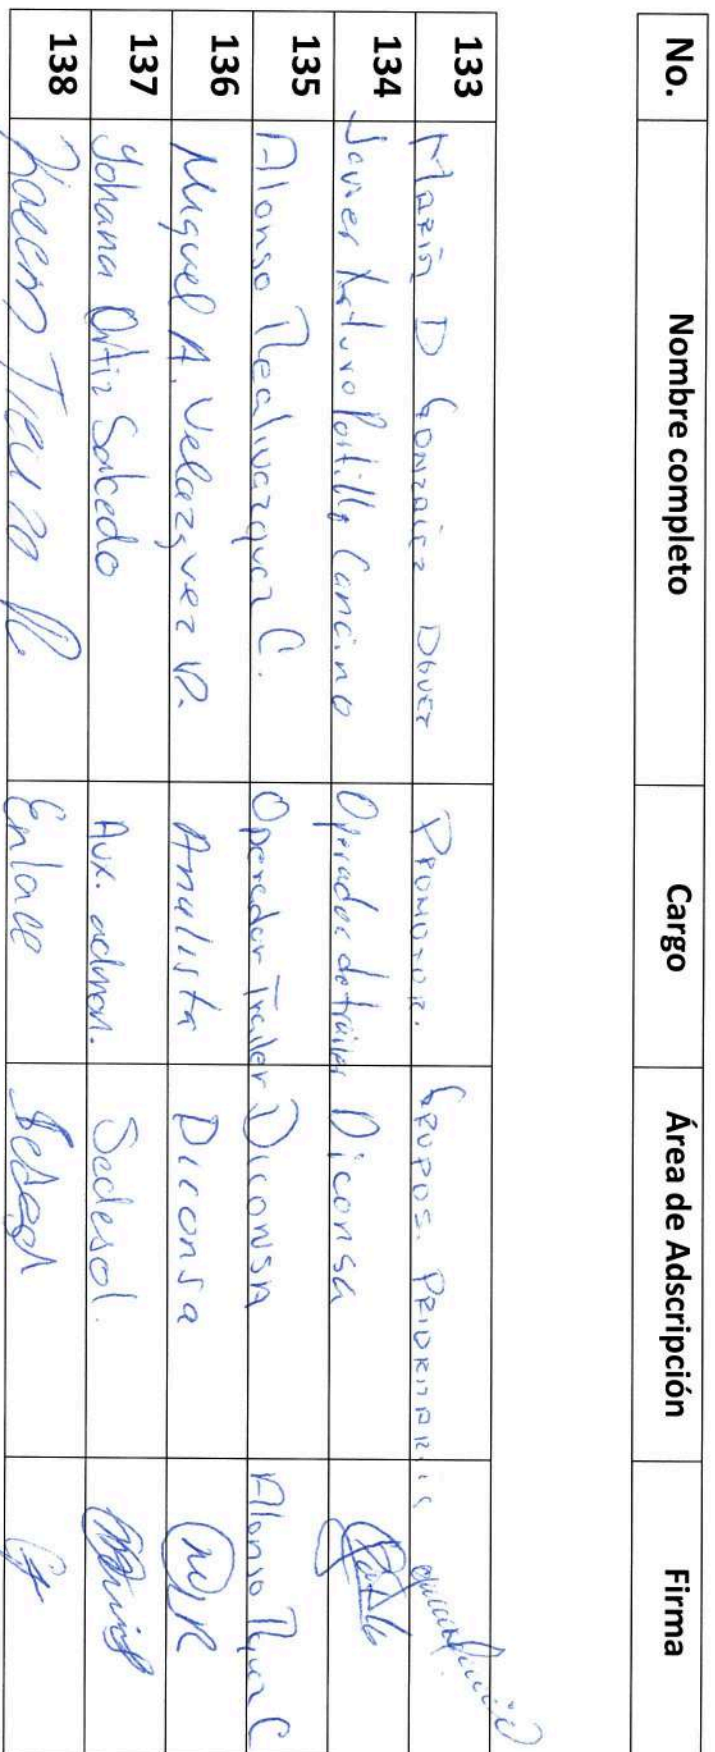 No. Nombre completo Cargo Área de Adscripción Firma
133 María D González Promotor. Grupos. Prioritarios
134 Javier Arturo Portillo Cancino Operador de trailer Diconsa
135 Alonso Realivazquez C. Operador Trailer Diconsa Alonso C
136 Miguel A. Velazquez R. Analista Diconsa
137 Yohana Ortiz Salcedo Aux. admon. Sedesol.
138 Enlace Sedesol